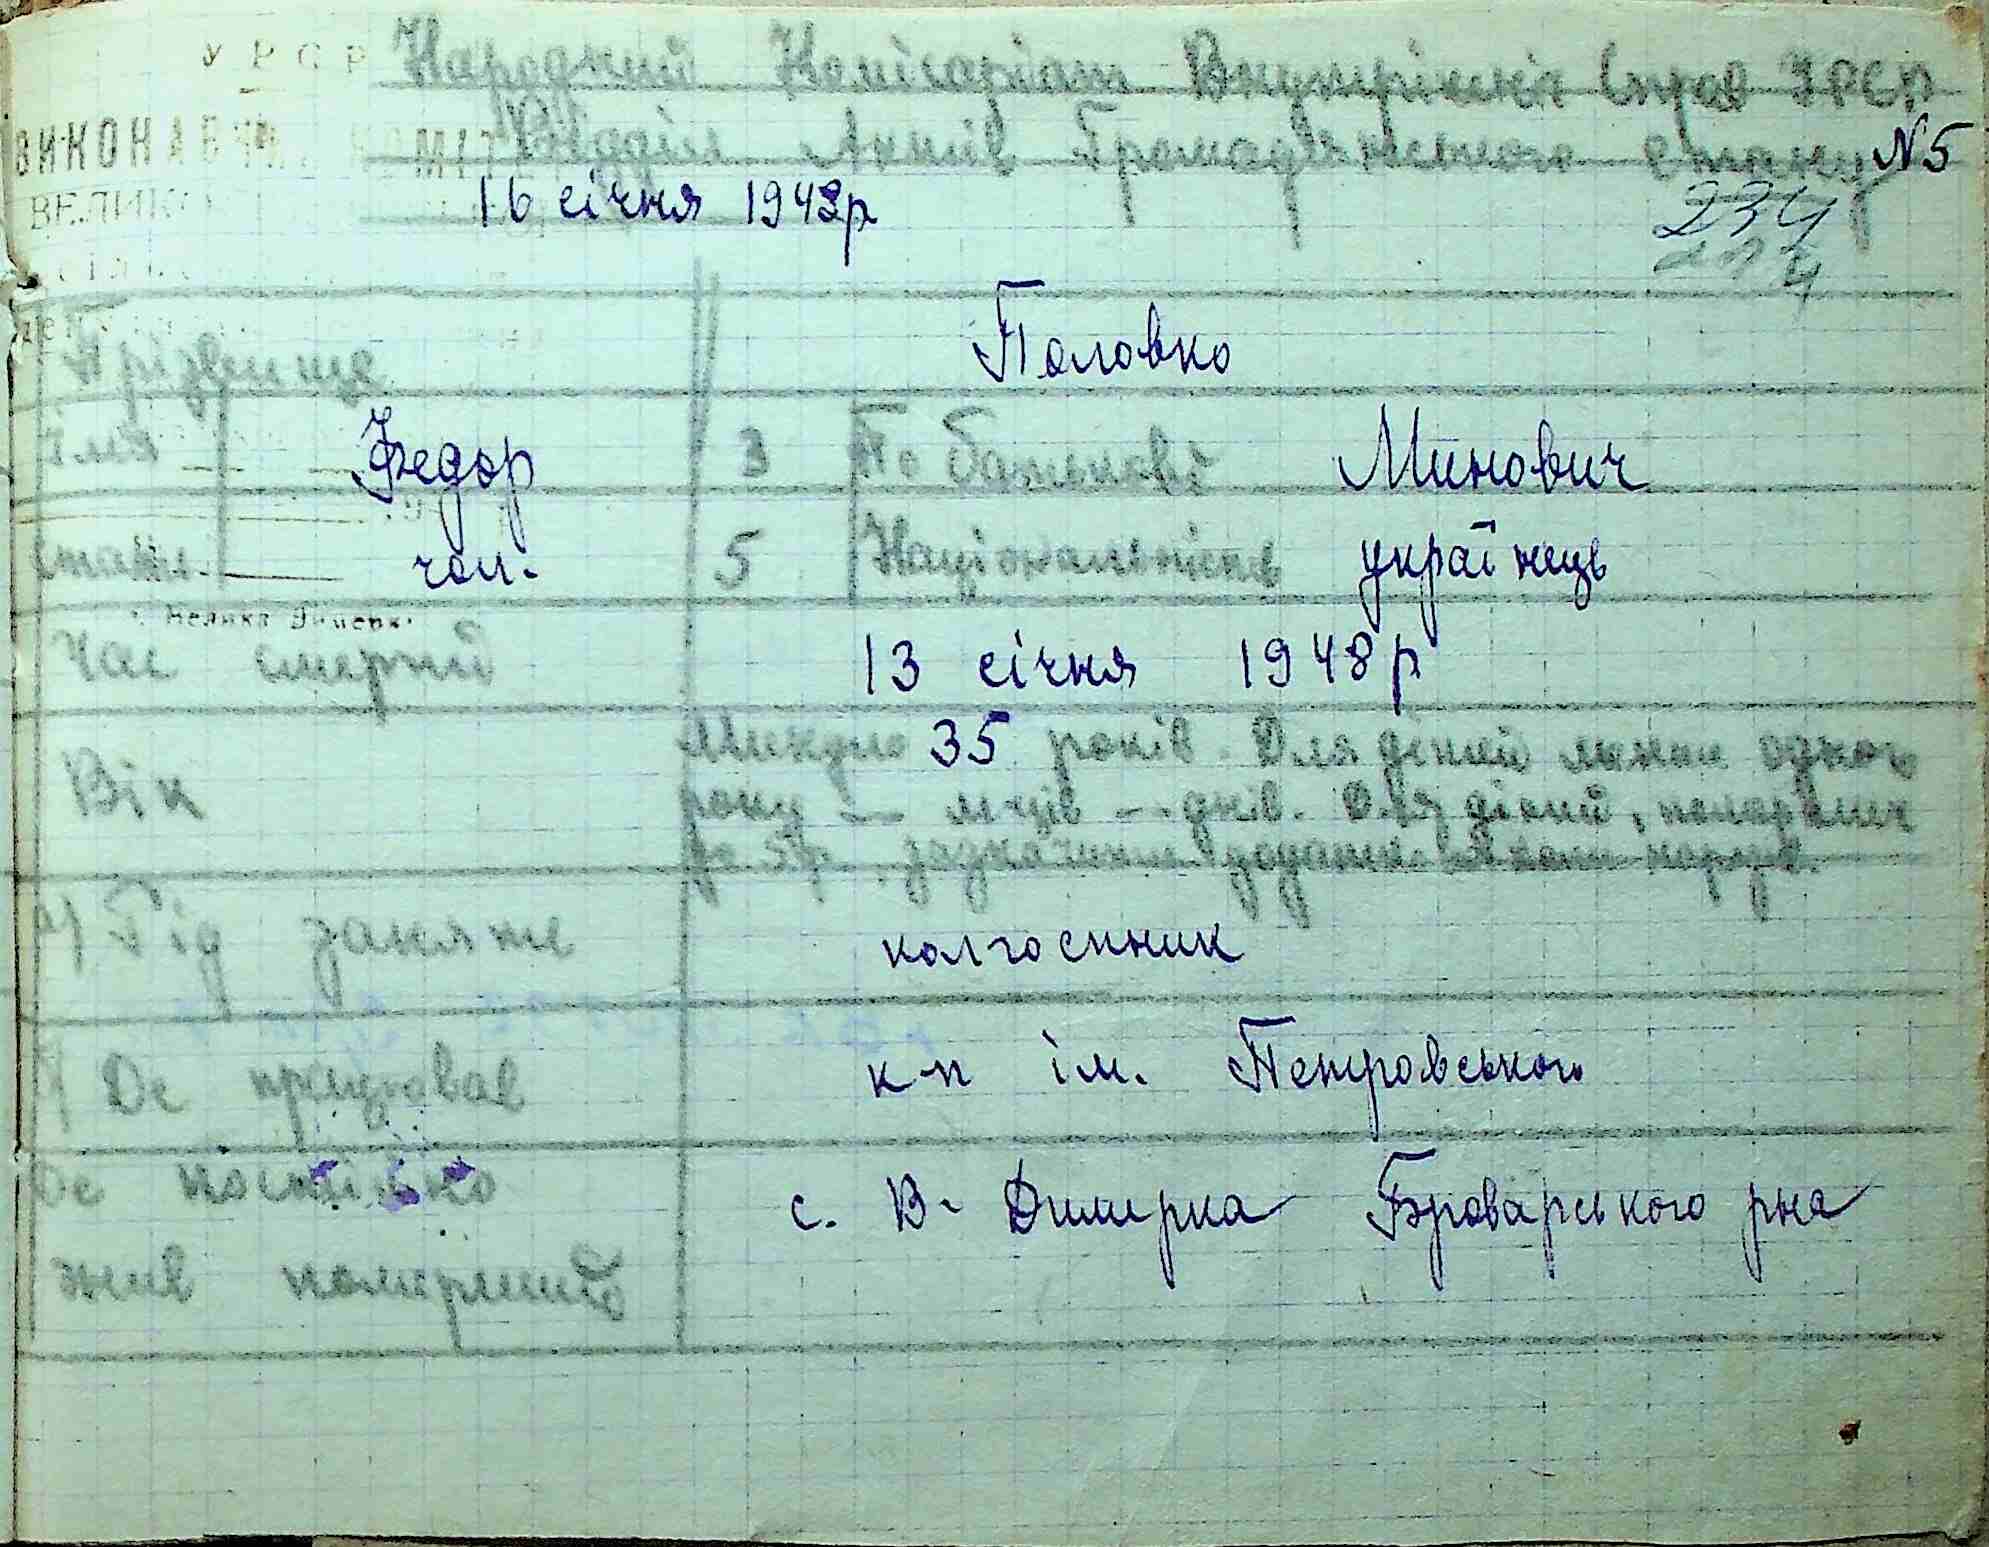 УРСР Народний Комісаріат Внутрішніх Справ УРСР
ВИКОНАВЧИЙ КОМІТ Відділ Актів Громадянського Стану N 5
ВЕЛИКО 16 січня 1948р 234
Прізвище Половко
Імя Федор 3 По батькові Минович
Стать чол. 5 Національність українець
Велика Димерка
Час смерти 13 січня 1948 р
Вік Минуло 35 років. Для дітей менше одного
року — м-ців — днів. Для дітей, померших
до 5р, зазначити додатково
Рід заняття колгоспник
Де працював к-п ім. Петровського
Де постійно с. В- Димерка Броварського р-на
жив померший